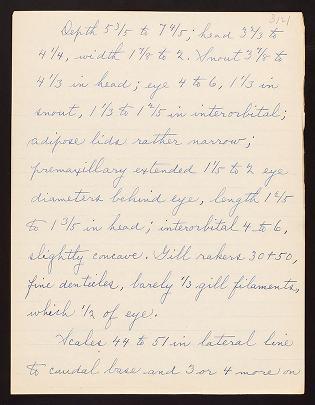 3121
Depth 5 3/5 to 7 4/5; head 3 2/3 to
4 1/4, width 1 7/8 to 2. Snout 3 7/8 to
4 1/3 in head; eye 4 to 6, 1 1/3 in
snout, 1 1/3 to 1 2/5 in interorbital;
adipose lids rather narrow;
premaxillary extended 1 1/5 to 2 eye
diameters behind eye, length 1 2/5
to 1 3/5 in head; interorbital 4 to 6,
slightly concave. Gill rakers 30+50,
fine denticles, barely 1/3 gill filaments,
which 1/2 of eye.
Scales 44 to 51 in lateral line
to caudal base and 3 or 4 more on